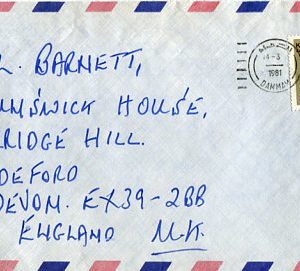 L. BARNETT,
MSWICK HOUSE,
RIDGE HILL.
DEFORD
DEVON. EX39-2BB
ENGLAND U.K.
4-3
1981
DAMMAM